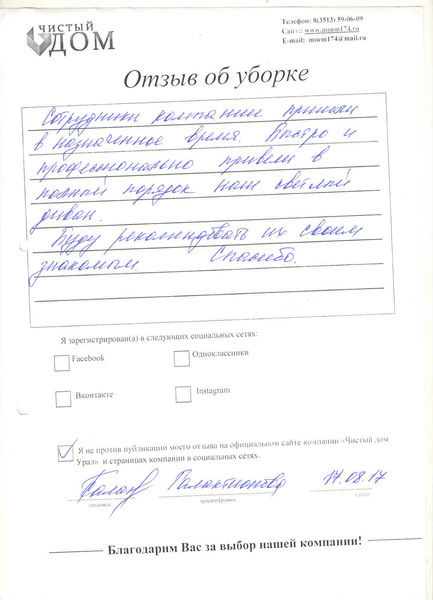 чистый
ДОМ
Телефон: 8(3513) 59-06-09
Сайт:: www.moem174.ru
E-mail: moem174@mail.ru
Отзыв об уборке
Сотрудники компании приехали
в назначенное время. Быстро и
профессионально привели в
полный порядок наш светлый
диван.
Буду рекомендовать их своим
знакомым. Спасибо.
Я зарегистрирован(а) в следующих социальных сетях:
Facebook
Одноклассники
Вконтакте
Instagram
Я не против публикации моего отзыва на официальном сайте компании «Чистый дом
Урал» и страницах компании в социальных сетях.
Галактионова 17.08.17
(подпись) (расшифровка)
Благодарим Вас за выбор нашей компании!